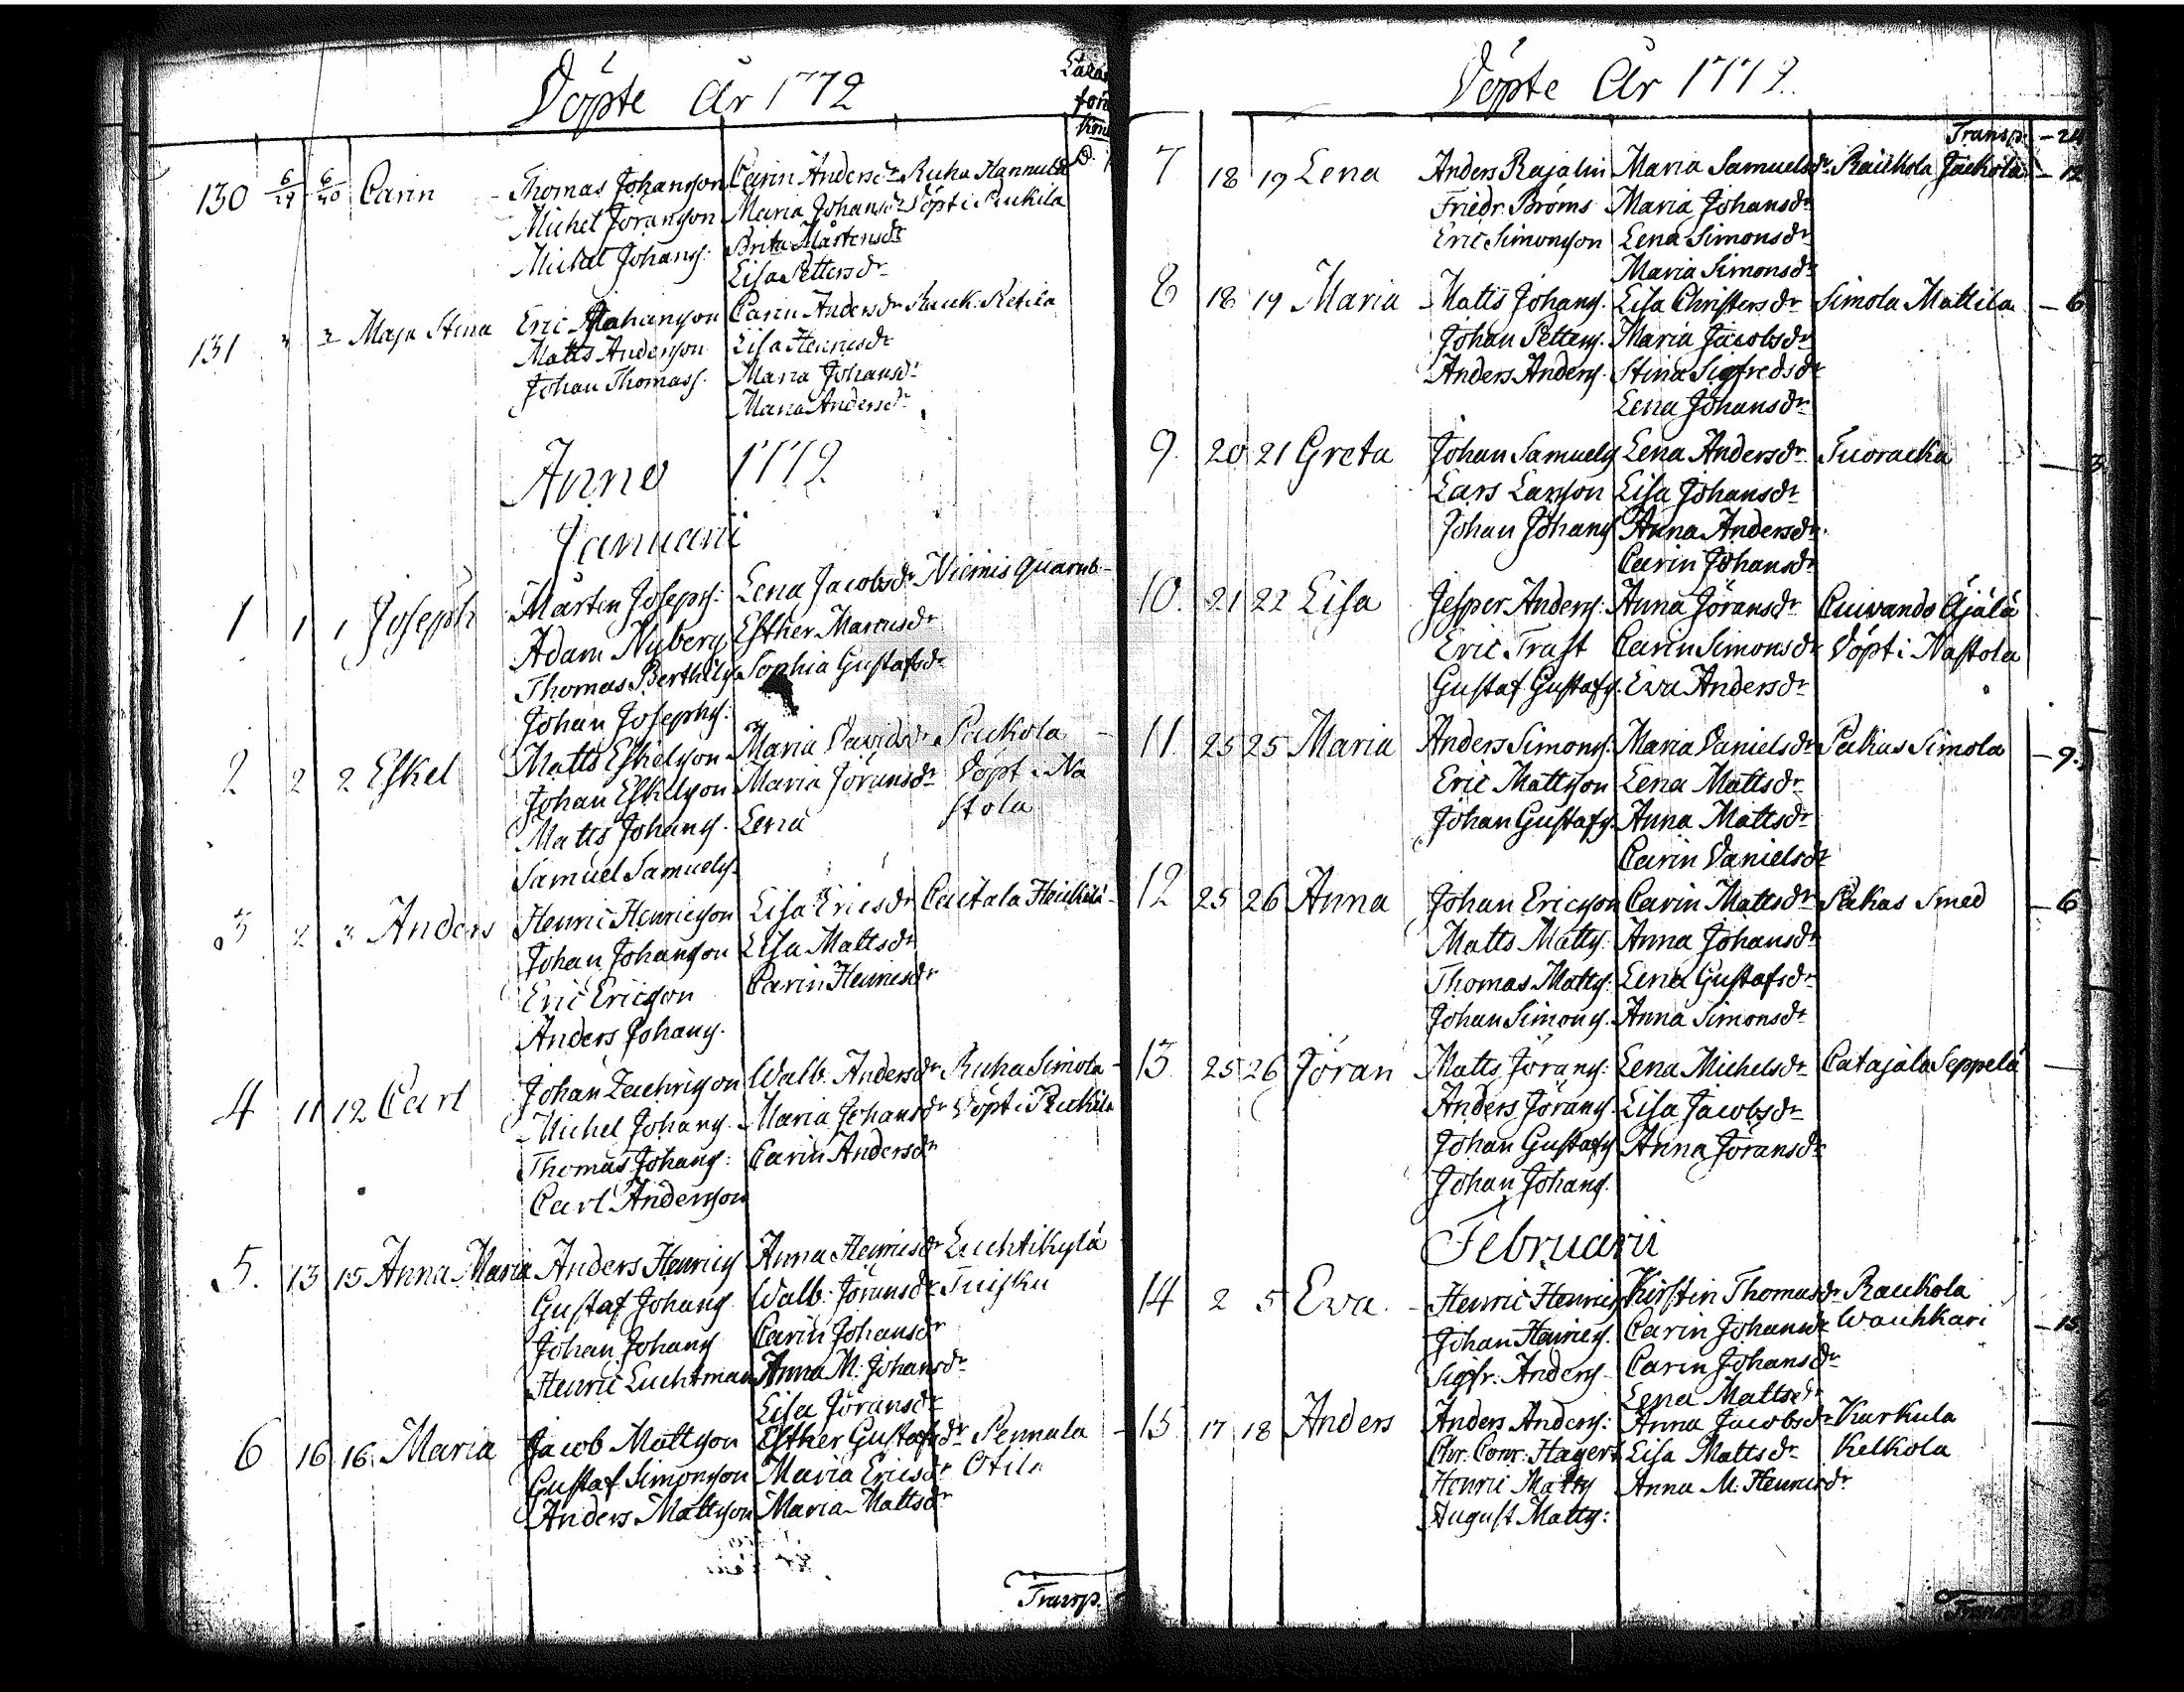 Döpte År 1772
130 6/29 6/30 Carin Thomas Johansson Carin Andersdr Ruha Hannula
Michel Joransson Maria Johansdr Döpt i Peukila
Michel Johanss: Brita Mårtensdr
Lisa Pettersdr
131 Maja Stina Eric Johansson Carin Andersdr Rauk. Retila
Matts Andersson Lisa Henricsdr
Johan Thomass. Maria Johansdr
Maria Andersdr
Anno 1772
Januarii
1 1 1 Joseph Mårten Josephs: Lena Jacobsdr Niemis quarnb
Adam Nyberg Esther Marcusdr
Thomas Berthils Sophia Gustafsdr
Johan Josephs:
2 2 2 Eskel Matts Eskelsson Maria Davidsdr Peukola
Johan Eskelsson Maria Joransdr Döpt i Na
Matts Johans. Lena stola
Samuel Samuels.
3 2 3 Anders Henric Henricsson Lisa Ericsdr Cutala Heickilä
Johan Johansson Lisa Mattsdr
Eric Ericsson Carin Henricsdr
Anders Johans.
4 11 12 Carl Johan Zachrisson Walb. Andersdr Ruha Simola
Michel Johans. Maria Johansdr Döpt i Peukila
Thomas Johans: Carin Andersdr
Carl Andersson
5. 13 15 Anna Maria Anders Henrics Anna Henricsdr Luchtikylä
Gustaf Johans Walb: Joransdr Tuisku
Johan Johans Carin Johansdr
Henric Luchtman Anna M: Johansdr
Lisa Joransdr
6 16 16 Maria Jacob Mattsson Esther Gustafsdr Pennala
Gustaf Simonsson Maria Ericsdr Otila
Anders Mattsson Maria Mattsdr
Transp.
Döpte År 1772
Transp. – 24
7 18 19 Lena Anders Rajalin Maria Samuelsdr Raukola Jackola – 12
Friedr. Broms Maria Johansdr
Eric Simonsson Lena Simonsdr
Maria Simonsdr
8 18 19 Maria Matts Johans. Lisa Christersdr Simola Mattila – 6
Johan Petters. Maria Jacobsdr
Anders Anders. Stina Sigfredsdr
Lena Johansdr
9. 20 21 Greta Johan Samuels Lena Andersdr Tuoracka – 3
Lars Larsson Lisa Johansdr
Johan Johans Anna Andersdr
Carin Johansdr
10. 21 22 Lisa Jesper Anders: Anna Joransdr Cuivando Äjälä
Eric Trast Carin Simonsdr Döpt i Nastola
Gustaf Gustafs. Eva Andersdr
11. 25 25 Maria Anders Simons: Maria Danielsdr Pakas Simola – 9.
Eric Mattsson Lena Mattsdr
Johan Gustafs. Anna Mattsdr
Carin Danielsdr
12 25 26 Anna Johan Ericsson Carin Mattsdr Pakas Smed – 6
Matts Matts: Anna Johansdr
Thomas Matts: Lena Gustafsdr
Johan Simons. Anna Simonsdr
13. 25 26 Jöran Matts Jörans: Lena Michelsdr Catajala Seppelä –
Anders Jörans. Lisa Jacobsdr
Johan Gustafs Anna Joransdr
Johan Johans.
Februarii
14 2 5 Eva Henric Henrics Kirstin Thomasdr Raukola
Johan Henrics. Carin Johansdr Wauhkari – 15
Sigfr: Anders Carin Johansdr
Lena Mattsdr
15 17 18 Anders Anders Anders: Anna Jacobsdr Karkula –
Chr. Conr. Hagert Lisa Mattsdr Kelkola
Henric Matts Anna M: Henricsdr
August Matts:
Transp.